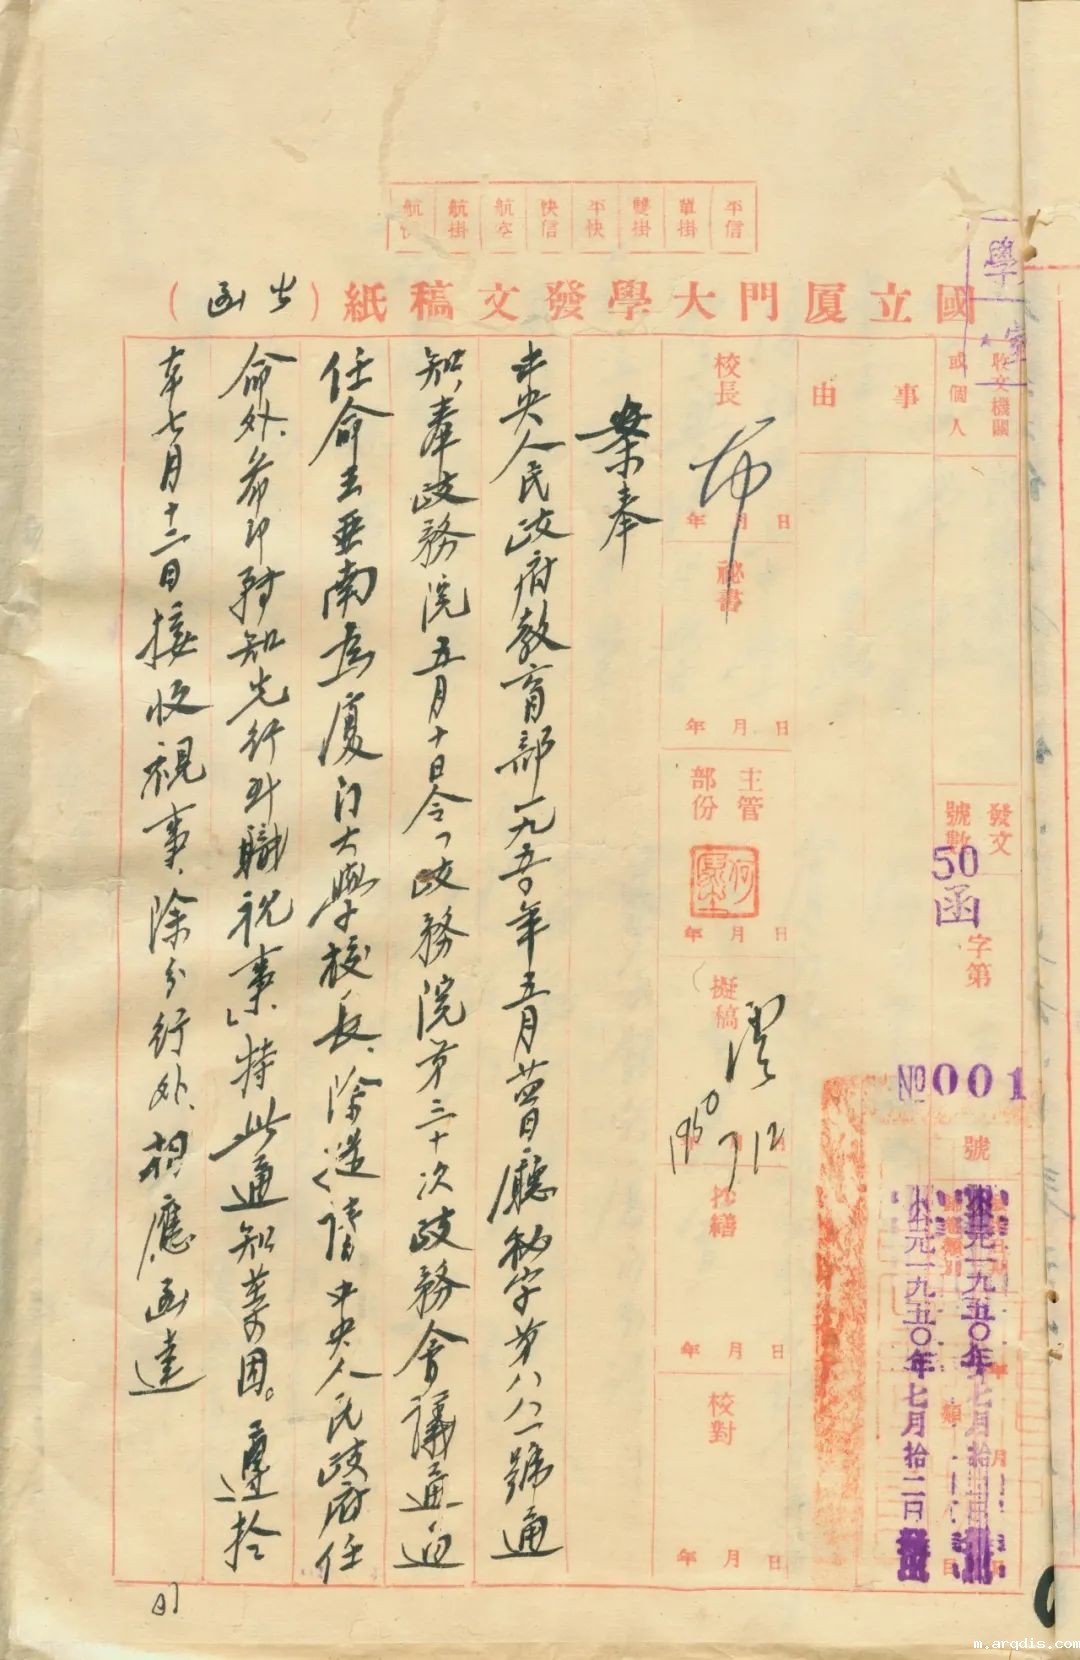 平信 單掛 雙掛 平快 快信 航空 航掛
國立厦門大學發文稿紙（公函）
學
收文機關或個人
事由
發文號數
50
函
字第
№001
號
公元一九五〇年七月拾二日
校長
年月日
秘書
年月日
主管部份
年月日
擬稿
1950 7/12
抄繕
年月日
校對
年月日
案奉
中央人民政府教育部一九五〇年五月廳秘字第八八一號通
知，奉政務院五月十日令「政務院第三十次政務會議通過
任命王亞南為廈门大學校長、除送請中央人民政府任
命外、希即轉知先行到職視事」、特此通知等因。遵於
本七月十二日接收視事、除分行外、相應函達
m.arqdis.com